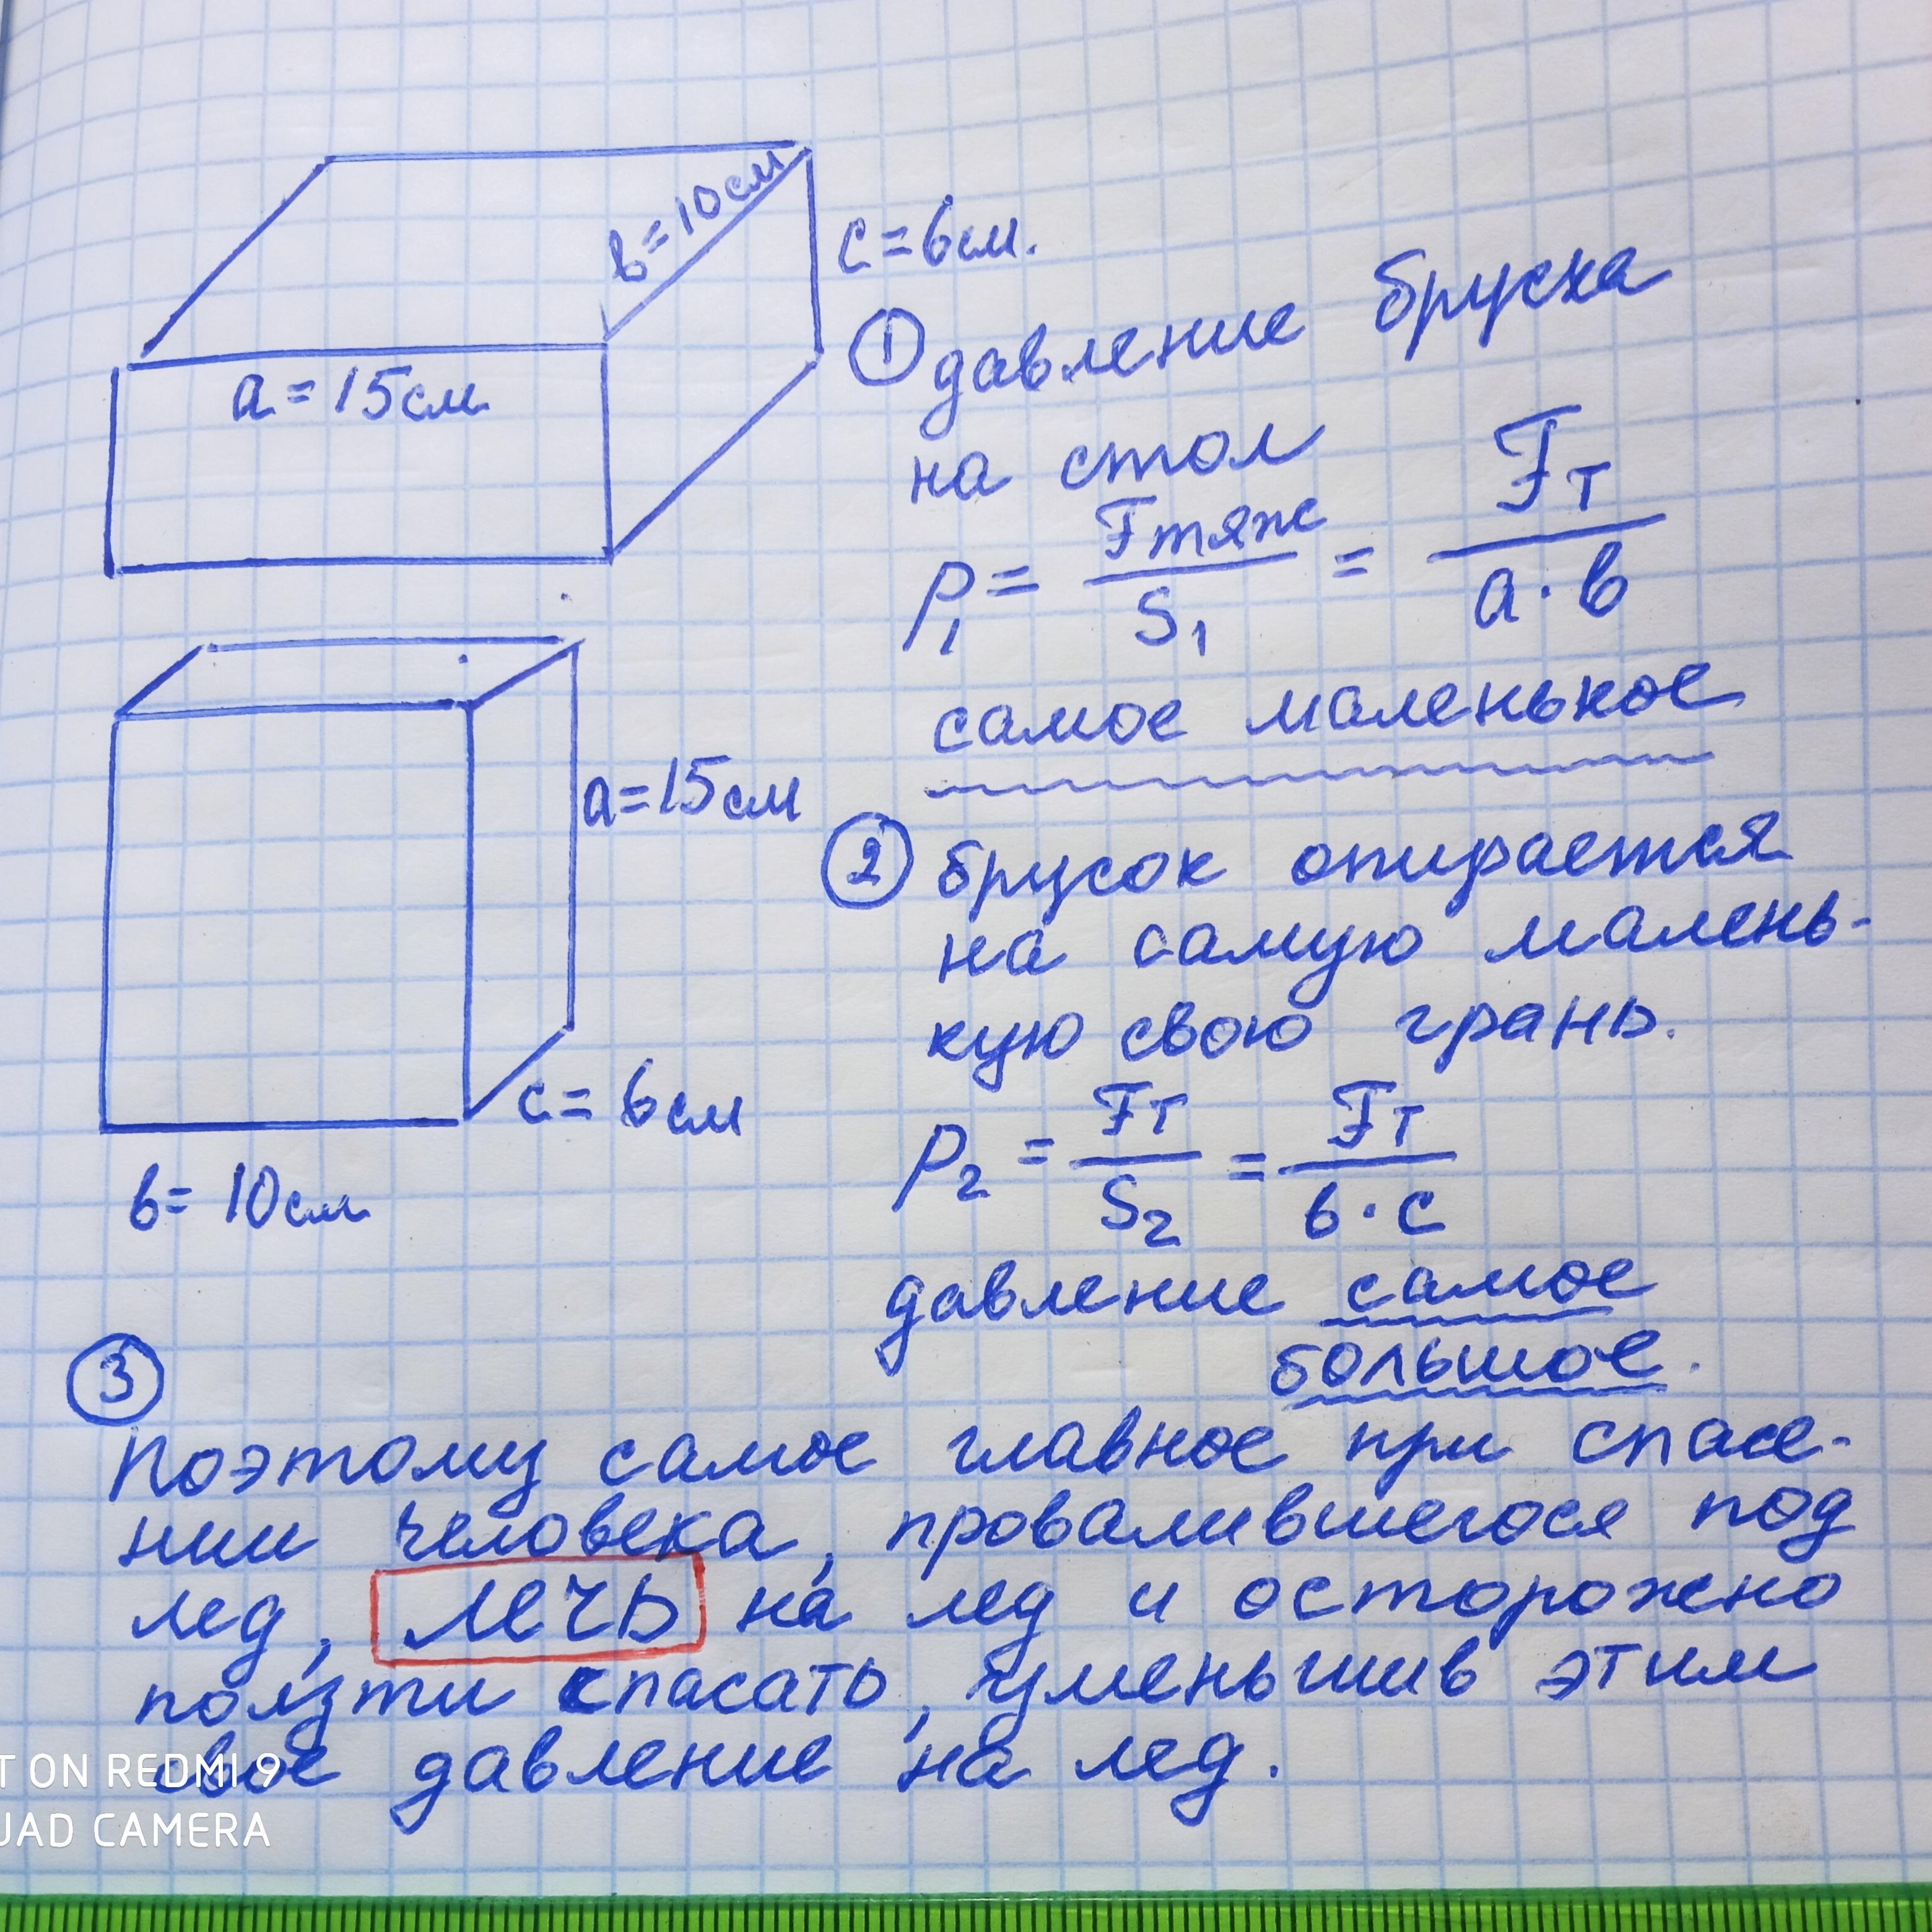 в=10см
с=6см.
а=15см
① давление бруска
на стол
P₁ = Fтяж / S₁ = Fт / а·в
самое маленькое
а=15см
с=6см
в=10см
② брусок опирается
на самую малень-
кую свою грань.
P₂ = Fт / S₂ = Fт / в·с
давление самое
большое.
③
Поэтому самое главное при спасе-
нии человека, провалившегося под
лед, ЛЕЧЬ на лед и осторожно
ползти спасать, уменьшив этим
свое давление на лед.
T ON REDMI 9
UAD CAMERA